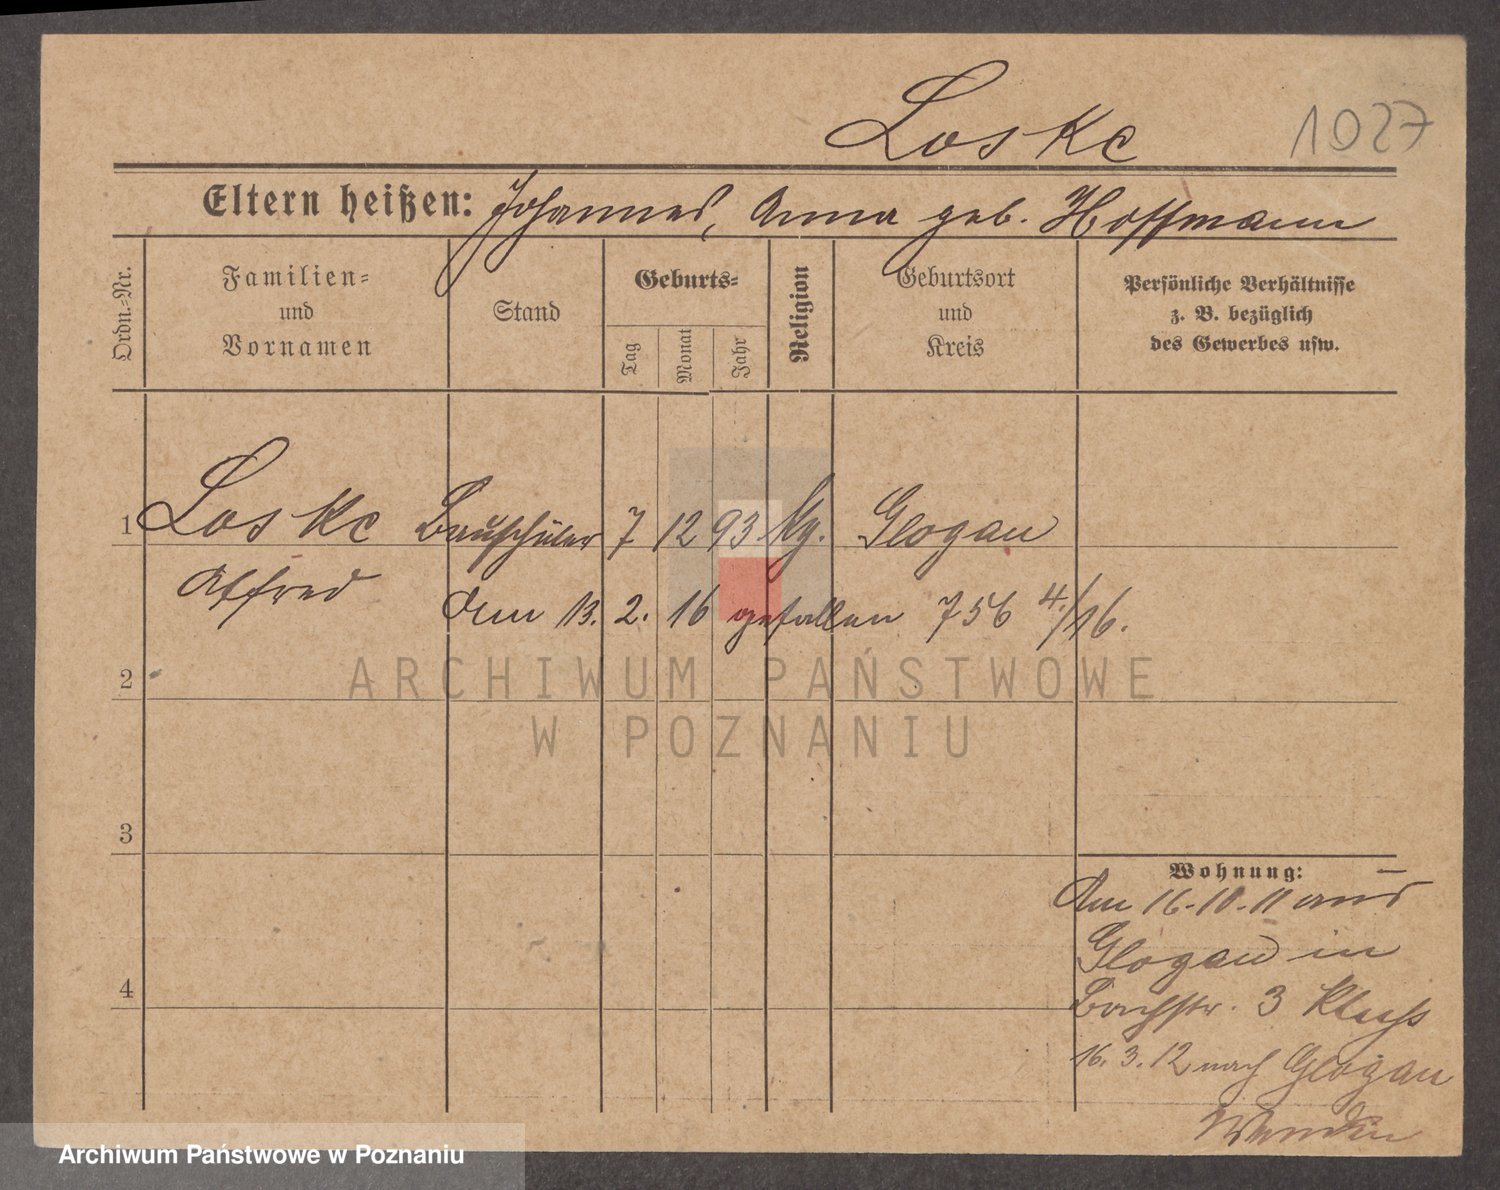 Loske 1027
Eltern heißen: Johannes, Anna geb. Hoffmann
Ordn.-Nr.
Familien-
und
Vornamen
Stand
Geburts-
Tag
Monat
Jahr
Religion
Geburtsort
und
Kreis
Persönliche Verhältnisse
z. B. bezüglich
des Gewerbes usw.
1 Loske Bauschüler 7 12 93 kg. Glogau
Alfred
Am 13. 2. 16 gefallen 756 4./16.
2
ARCHIWUM PAŃSTWOWE
W POZNANIU
3
Wohnung:
Am 16.10.11 aus
Glogau in
Bachstr. 3
4
16.3.12 nach Glogau
Archiwum Państwowe w Poznaniu